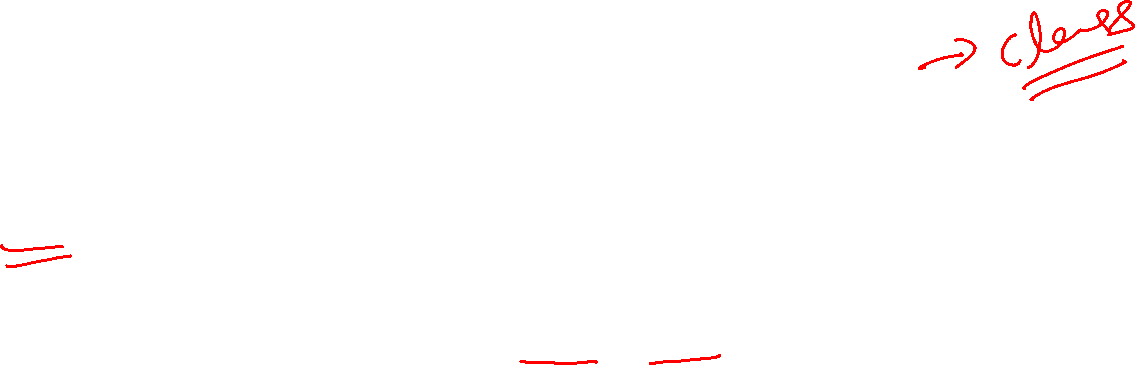 → class